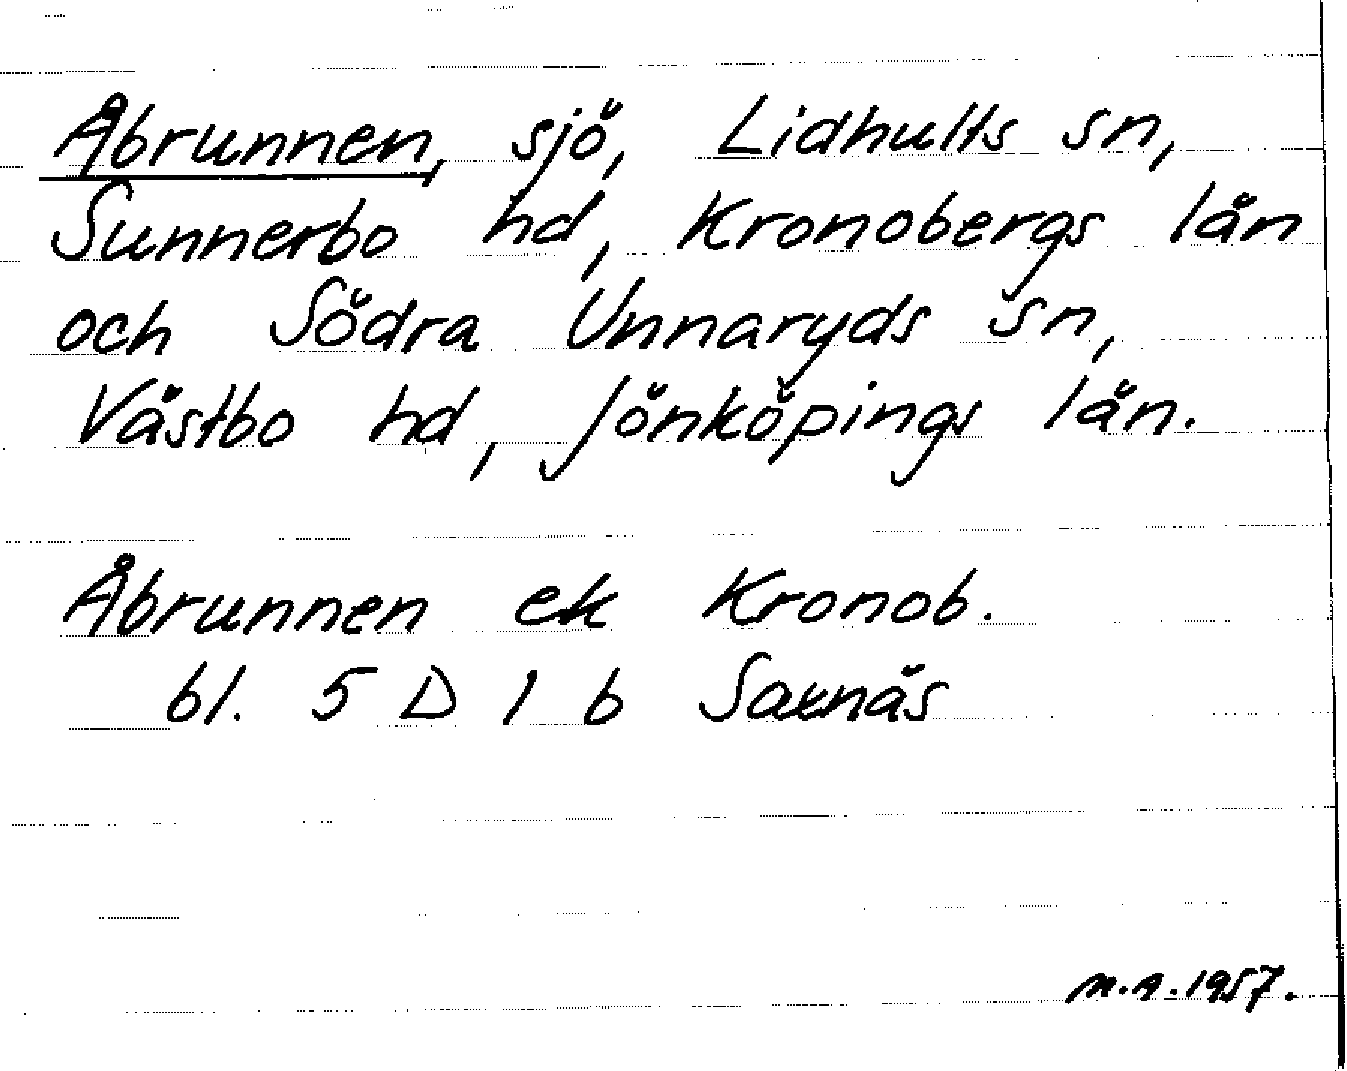 Åbrunnen, sjö, Lidhults sn,
Sunnerbo hd, Kronobergs län
och Södra Unnaryds sn,
Västbo hd, Jönköpings län.
Åbrunnen ek Kronob.
bl. 5 D 1 b Saxnäs
1957.